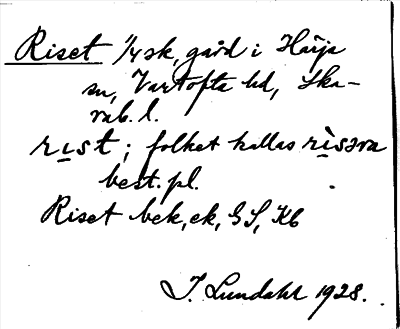 Riset 1/4 sk, gård i Härja
sn, Vartofta hd, Ska-
rab. l.
rıst; folket kallas rìsəra
best. pl.
Riset bek, ek, GS, Kb
J. Lundahl 1928.